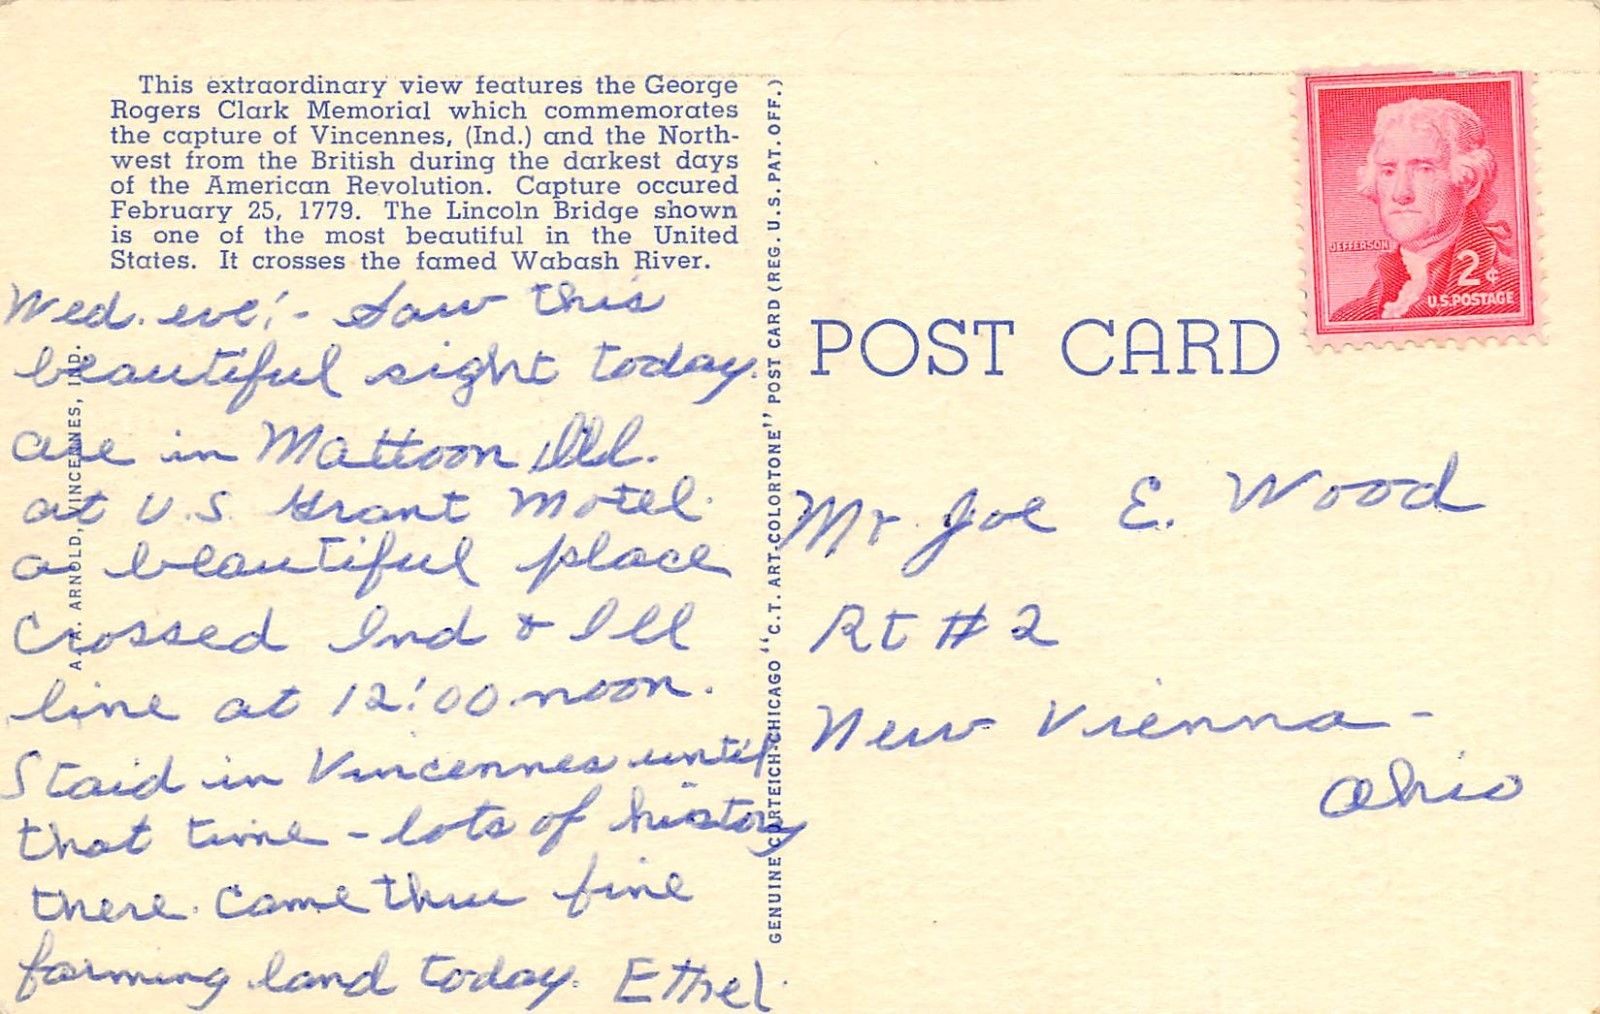 This extraordinary view features the George
Rogers Clark Memorial which commemorates
the capture of Vincennes, (Ind.) and the North-
west from the British during the darkest days
of the American Revolution. Capture occured
February 25, 1779. The Lincoln Bridge shown
is one of the most beautiful in the United
States. It crosses the famed Wabash River.
Wed. eve:- Saw this
beautiful sight today.
are in Mattoon Ill.
at U.S. Grant Motel.
a beautiful place
Crossed Ind & Ill
line at 12:00 noon.
Staid in Vincennes until
that time - lots of history
there. Came thru fine
farming land today. Ethel.
A. A. ARNOLD, VINCENNES, IND.
GENUINE CURTEICH-CHICAGO "C.T. ART-COLORTONE" POST CARD (REG. U.S. PAT. OFF.)
JEFFERSON
2¢
U.S. POSTAGE
POST CARD
Mr. Joe E. Wood
Rt #2
New Vienna -
Ohio